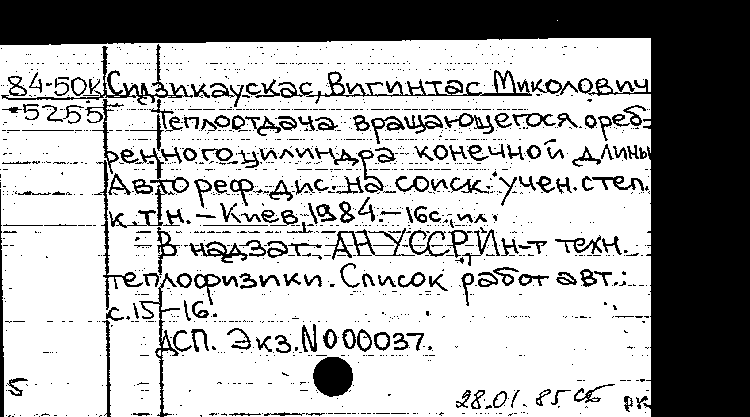 84-50к Сидзикаускас, Вигинтас Миколович
5255 Теплоотдача вращающегося ореб-
ренного цилиндра конечной длины
Автореф. дис. на соиск. учен. степ.
к.т.н. – Киев, 1984. – 16с., ил.
В надзаг.: АН УССР, Ин-т техн.
теплофизики. Список работ авт.:
с. 15–16.
ДСП. Экз. N 000037.
5
28.01.85